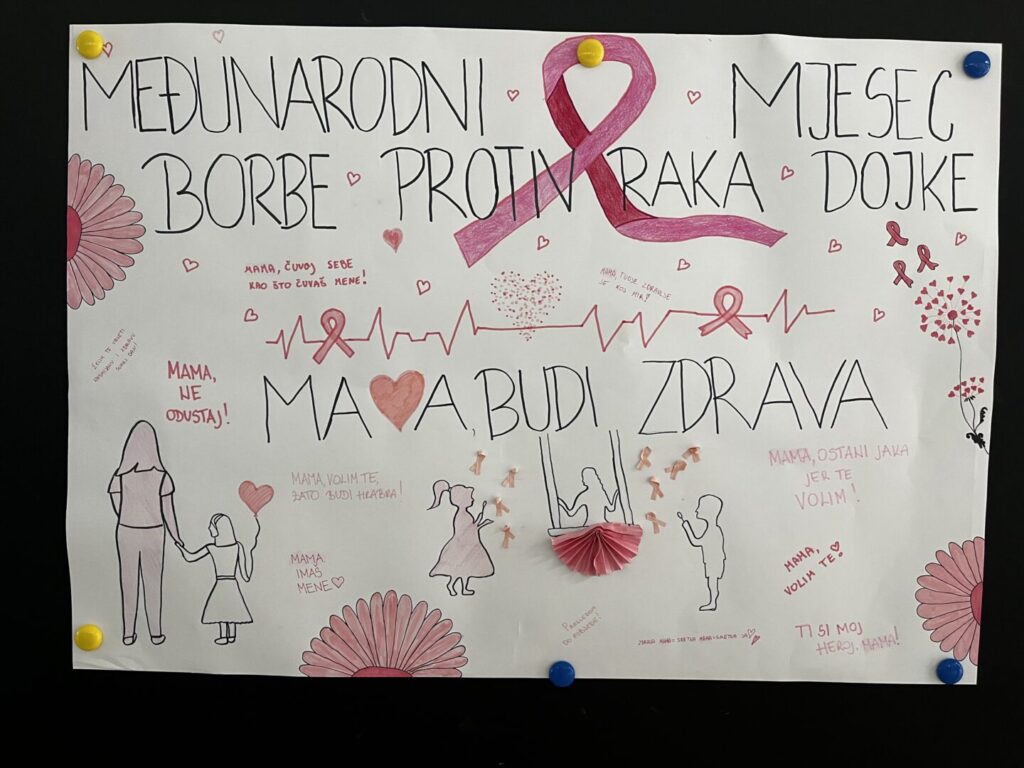 MEĐUNARODNI MJESEC
BORBE PROTIV RAKA DOJKE
MAMA, ČUVOJ SEBE
KAO ŠTO ČUVAŠ MENE!
MAMA, TVOJE ZDRAVLJE
JE MOJ MIR!
MAMA,
NE
ODUSTAJ!
MAMA, BUDI ZDRAVA
MAMA, VOLIM TE,
ZATO BUDI HRABRA!
MAMA, OSTANI JAKA
JER TE
VOLIM!
MAMA
IMAŠ
MENE
MAMA,
VOLIM TE!
PREGLEDOM
DO POBJEDE!
TI SI MOJ
HEROJ, MAMA!